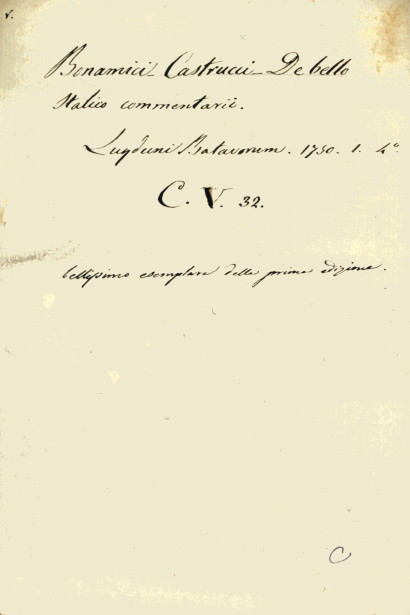 v.
Bonamici Castrucci De bello
Italico commentarii.
Lugduni Batavorum. 1750. 1. 4°
C. V. 32.
bellissimo esemplare della prima edizione.
C